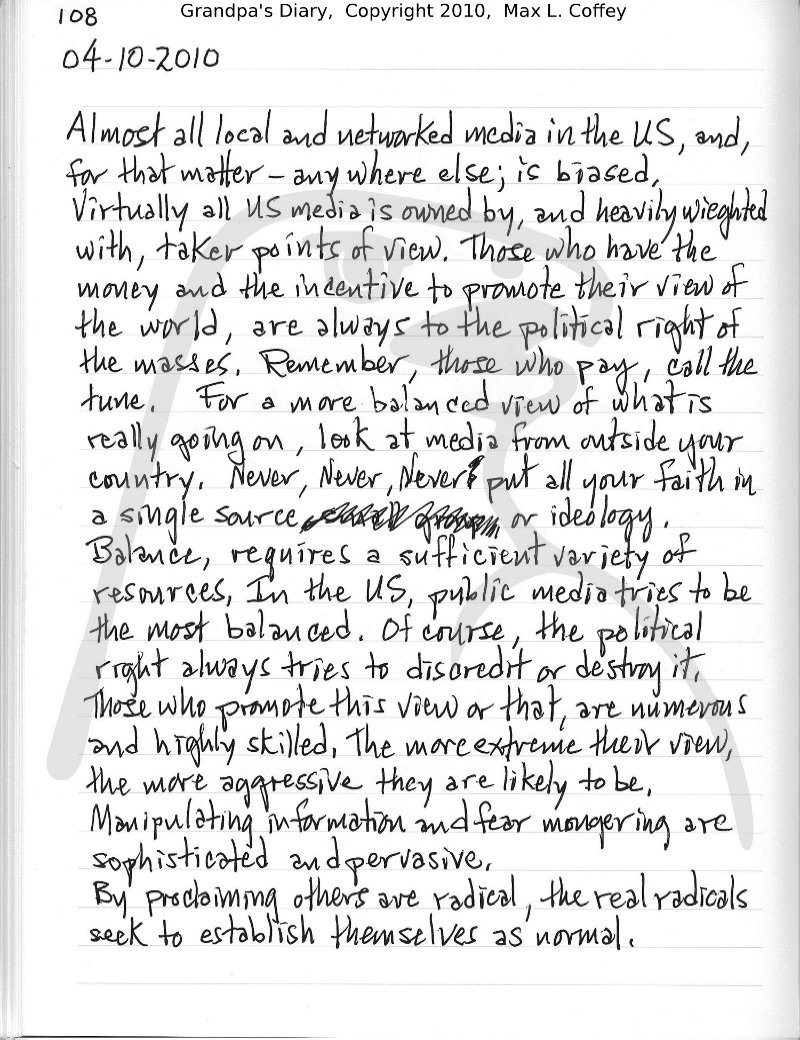 108
Grandpa's Diary, Copyright 2010, Max L. Coffey
04-10-2010
Almost all local and networked media in the US, and,
for that matter – anywhere else; is biased.
Virtually all US media is owned by, and heavily wieghted
with, taker points of view. Those who have the
money and the incentive to promote their view of
the world, are always to the political right of
the masses. Remember, those who pay, call the
tune. For a more balanced view of what is
really going on, look at media from outside your
country. Never, Never, Never put all your faith in
a single source or ideology.
Balance, requires a sufficient variety of
resources. In the US, public media tries to be
the most balanced. Of course, the political
right always tries to discredit or destroy it.
Those who promote this view or that, are numerous
and highly skilled. The more extreme their view,
the more aggressive they are likely to be.
Manipulating information and fear mongering are
sophisticated and pervasive.
By proclaiming others are radical, the real radicals
seek to establish themselves as normal.